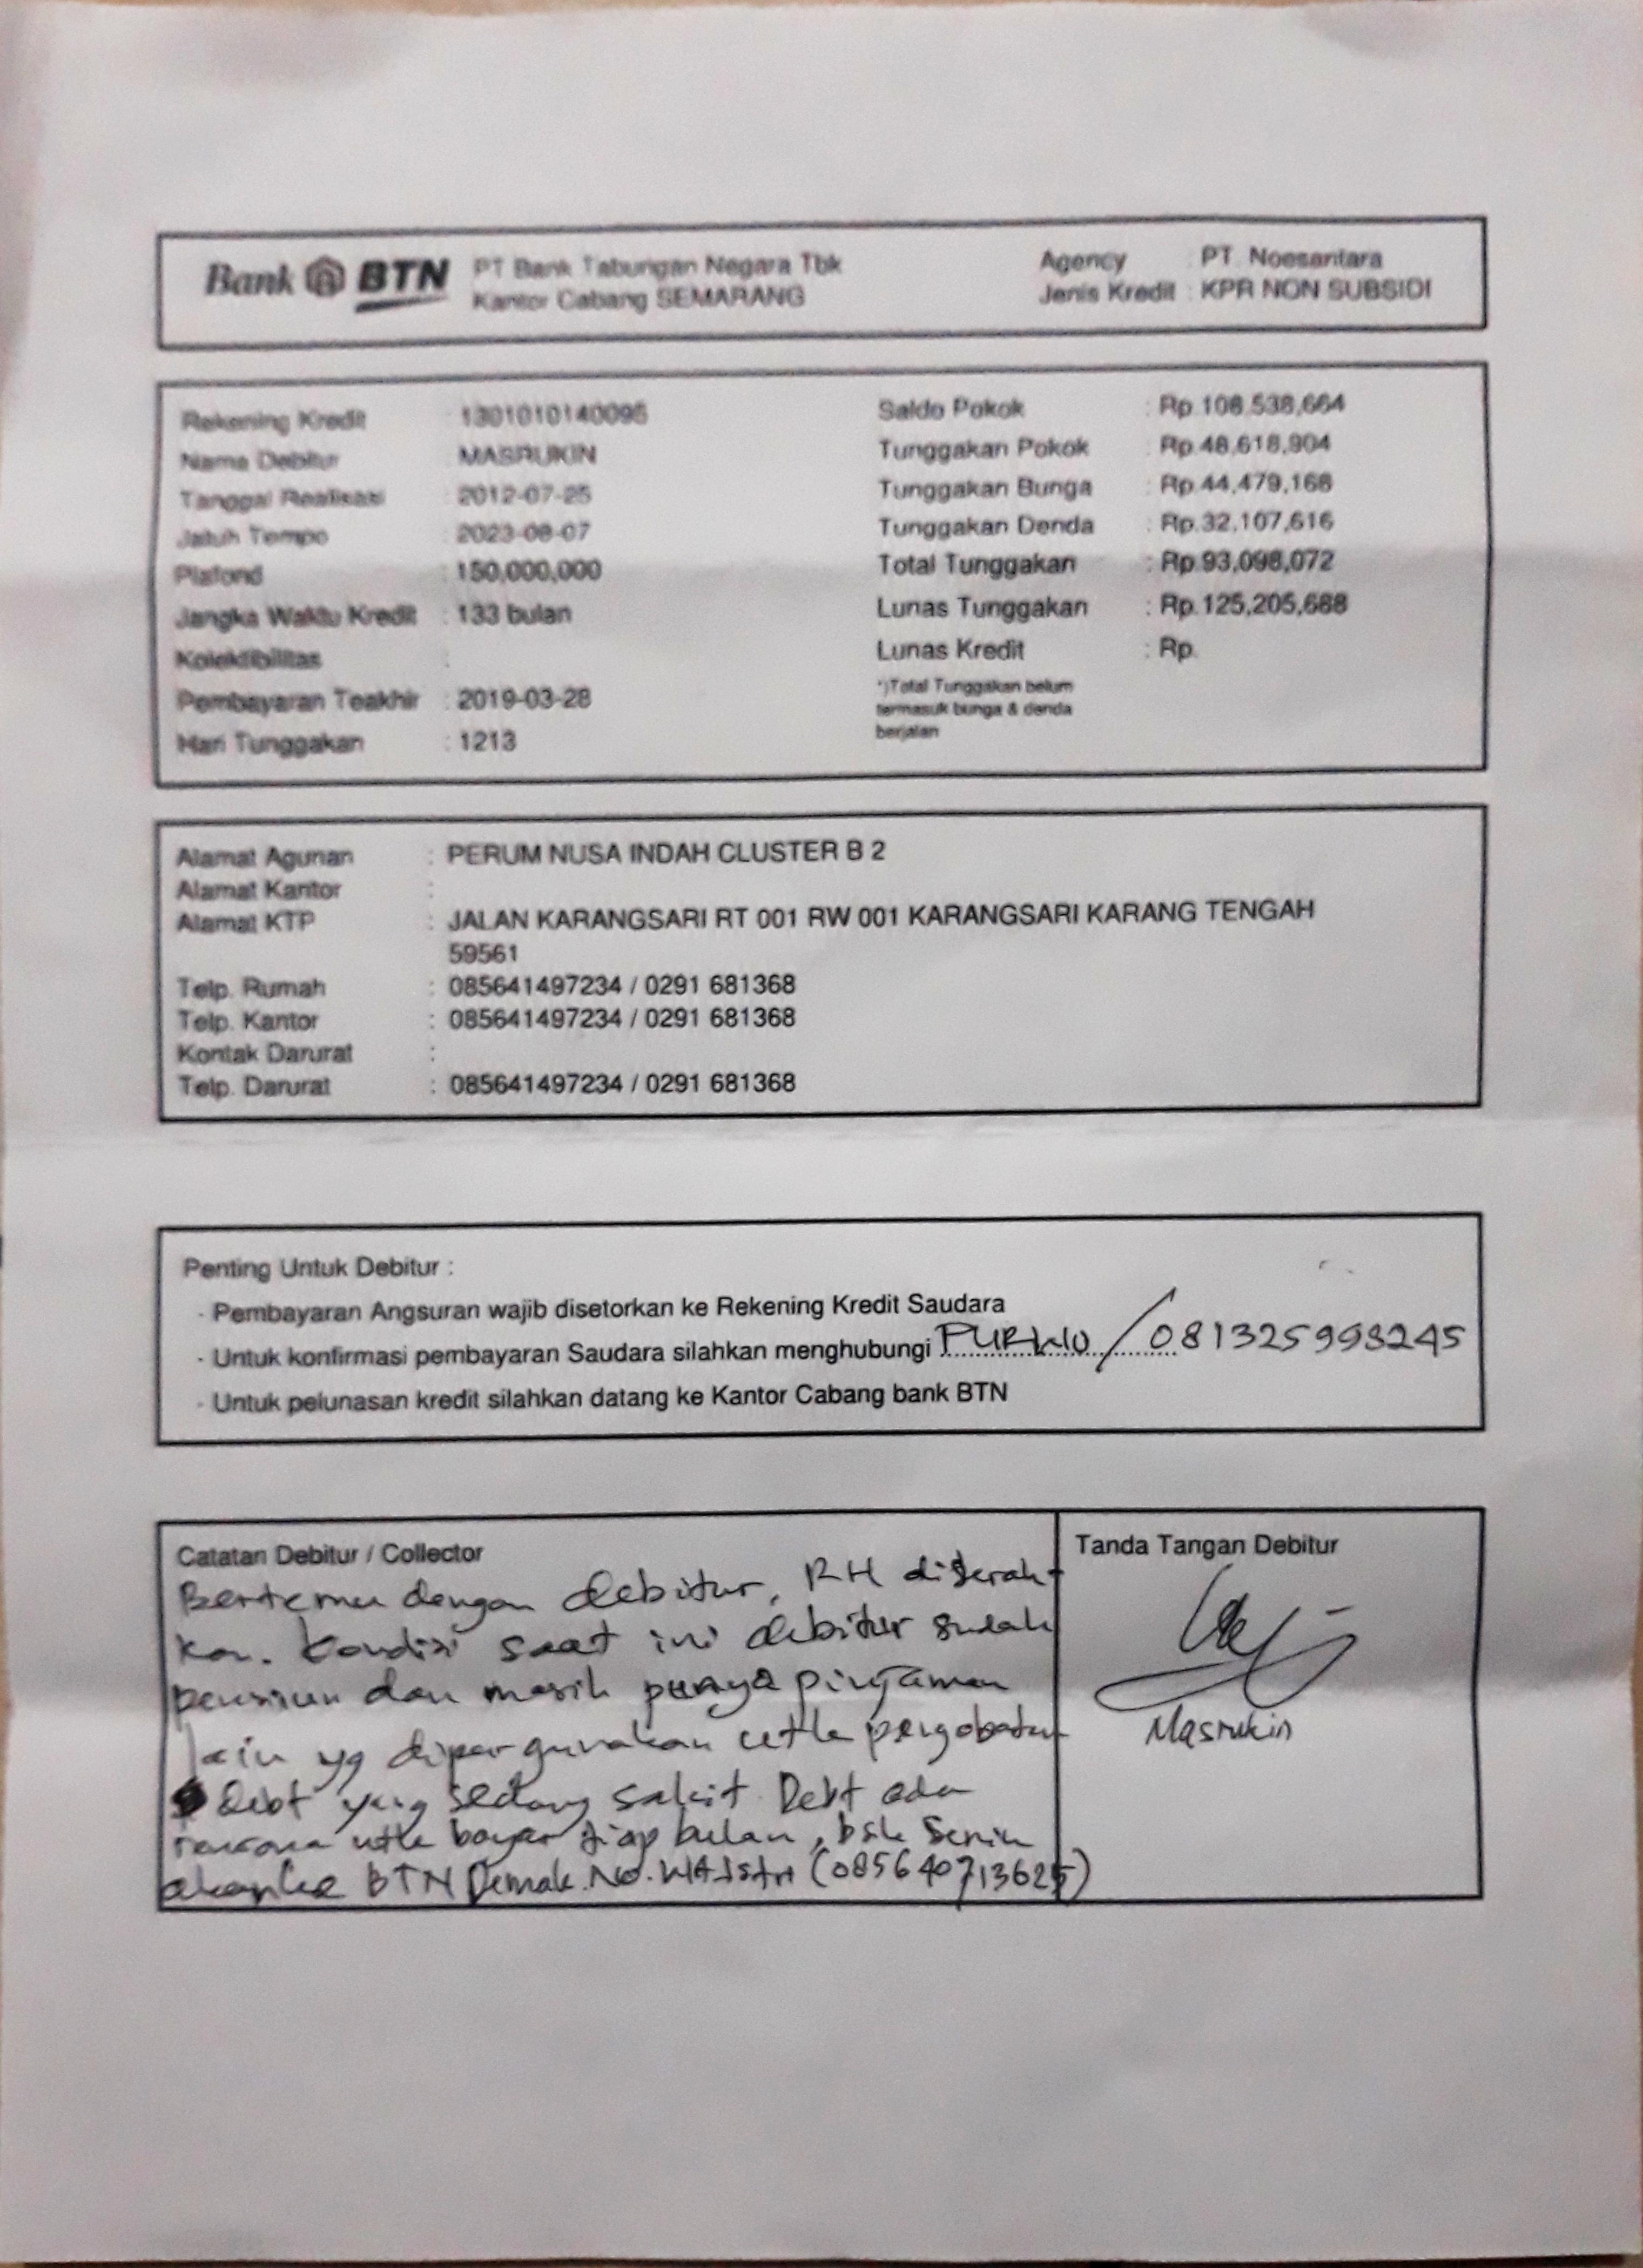 Bank BTN PT Bank Tabungan Negara Tbk
Kantor Cabang SEMARANG
Agency : PT. Noesantara
Jenis Kredit : KPR NON SUBSIDI
Rekening Kredit : 1301010140095
Nama Debitur : MASRUKIN
Tanggal Realisasi : 2012-07-25
Jatuh Tempo : 2023-08-07
Plafond : 150,000,000
Jangka Waktu Kredit : 133 bulan
Kolektibilitas :
Pembayaran Teakhir : 2019-03-28
Hari Tunggakan : 1213
Saldo Pokok : Rp.108,538,664
Tunggakan Pokok : Rp.48,618,904
Tunggakan Bunga : Rp.44,479,168
Tunggakan Denda : Rp.32,107,616
Total Tunggakan : Rp.93,098,072
Lunas Tunggakan : Rp.125,205,688
Lunas Kredit : Rp.
*)Total Tunggakan belum
termasuk bunga & denda
berjalan
Alamat Agunan : PERUM NUSA INDAH CLUSTER B 2
Alamat Kantor :
Alamat KTP : JALAN KARANGSARI RT 001 RW 001 KARANGSARI KARANG TENGAH
59561
Telp. Rumah : 085641497234 / 0291 681368
Telp. Kantor : 085641497234 / 0291 681368
Kontak Darurat :
Telp. Darurat : 085641497234 / 0291 681368
Penting Untuk Debitur :
- Pembayaran Angsuran wajib disetorkan ke Rekening Kredit Saudara
- Untuk konfirmasi pembayaran Saudara silahkan menghubungi PURWO / 081325993245
- Untuk pelunasan kredit silahkan datang ke Kantor Cabang bank BTN
Catatan Debitur / Collector
Bertemu dengan debitur, RH diserah-
kan. Kondisi saat ini debitur sudah
pensiun dan masih punya pinjaman
lain yg dipergunakan utk pengobatan
debt yang sedang sakit. Debt ada
rencana utk bayar tiap bulan, bsk Senin
akan ke BTN Demak. No. WA Istri (085640713625)
Tanda Tangan Debitur
Masrukin